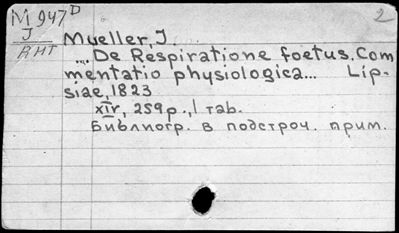 M 947 D
2
J
RMT
Mueller, J.
... De Respiratione foetus. Com
mentatio physiologica... Lip-
siae, 1823
XIV, 259 p., 1 tab.
Библиогр. в подстроч. прим.